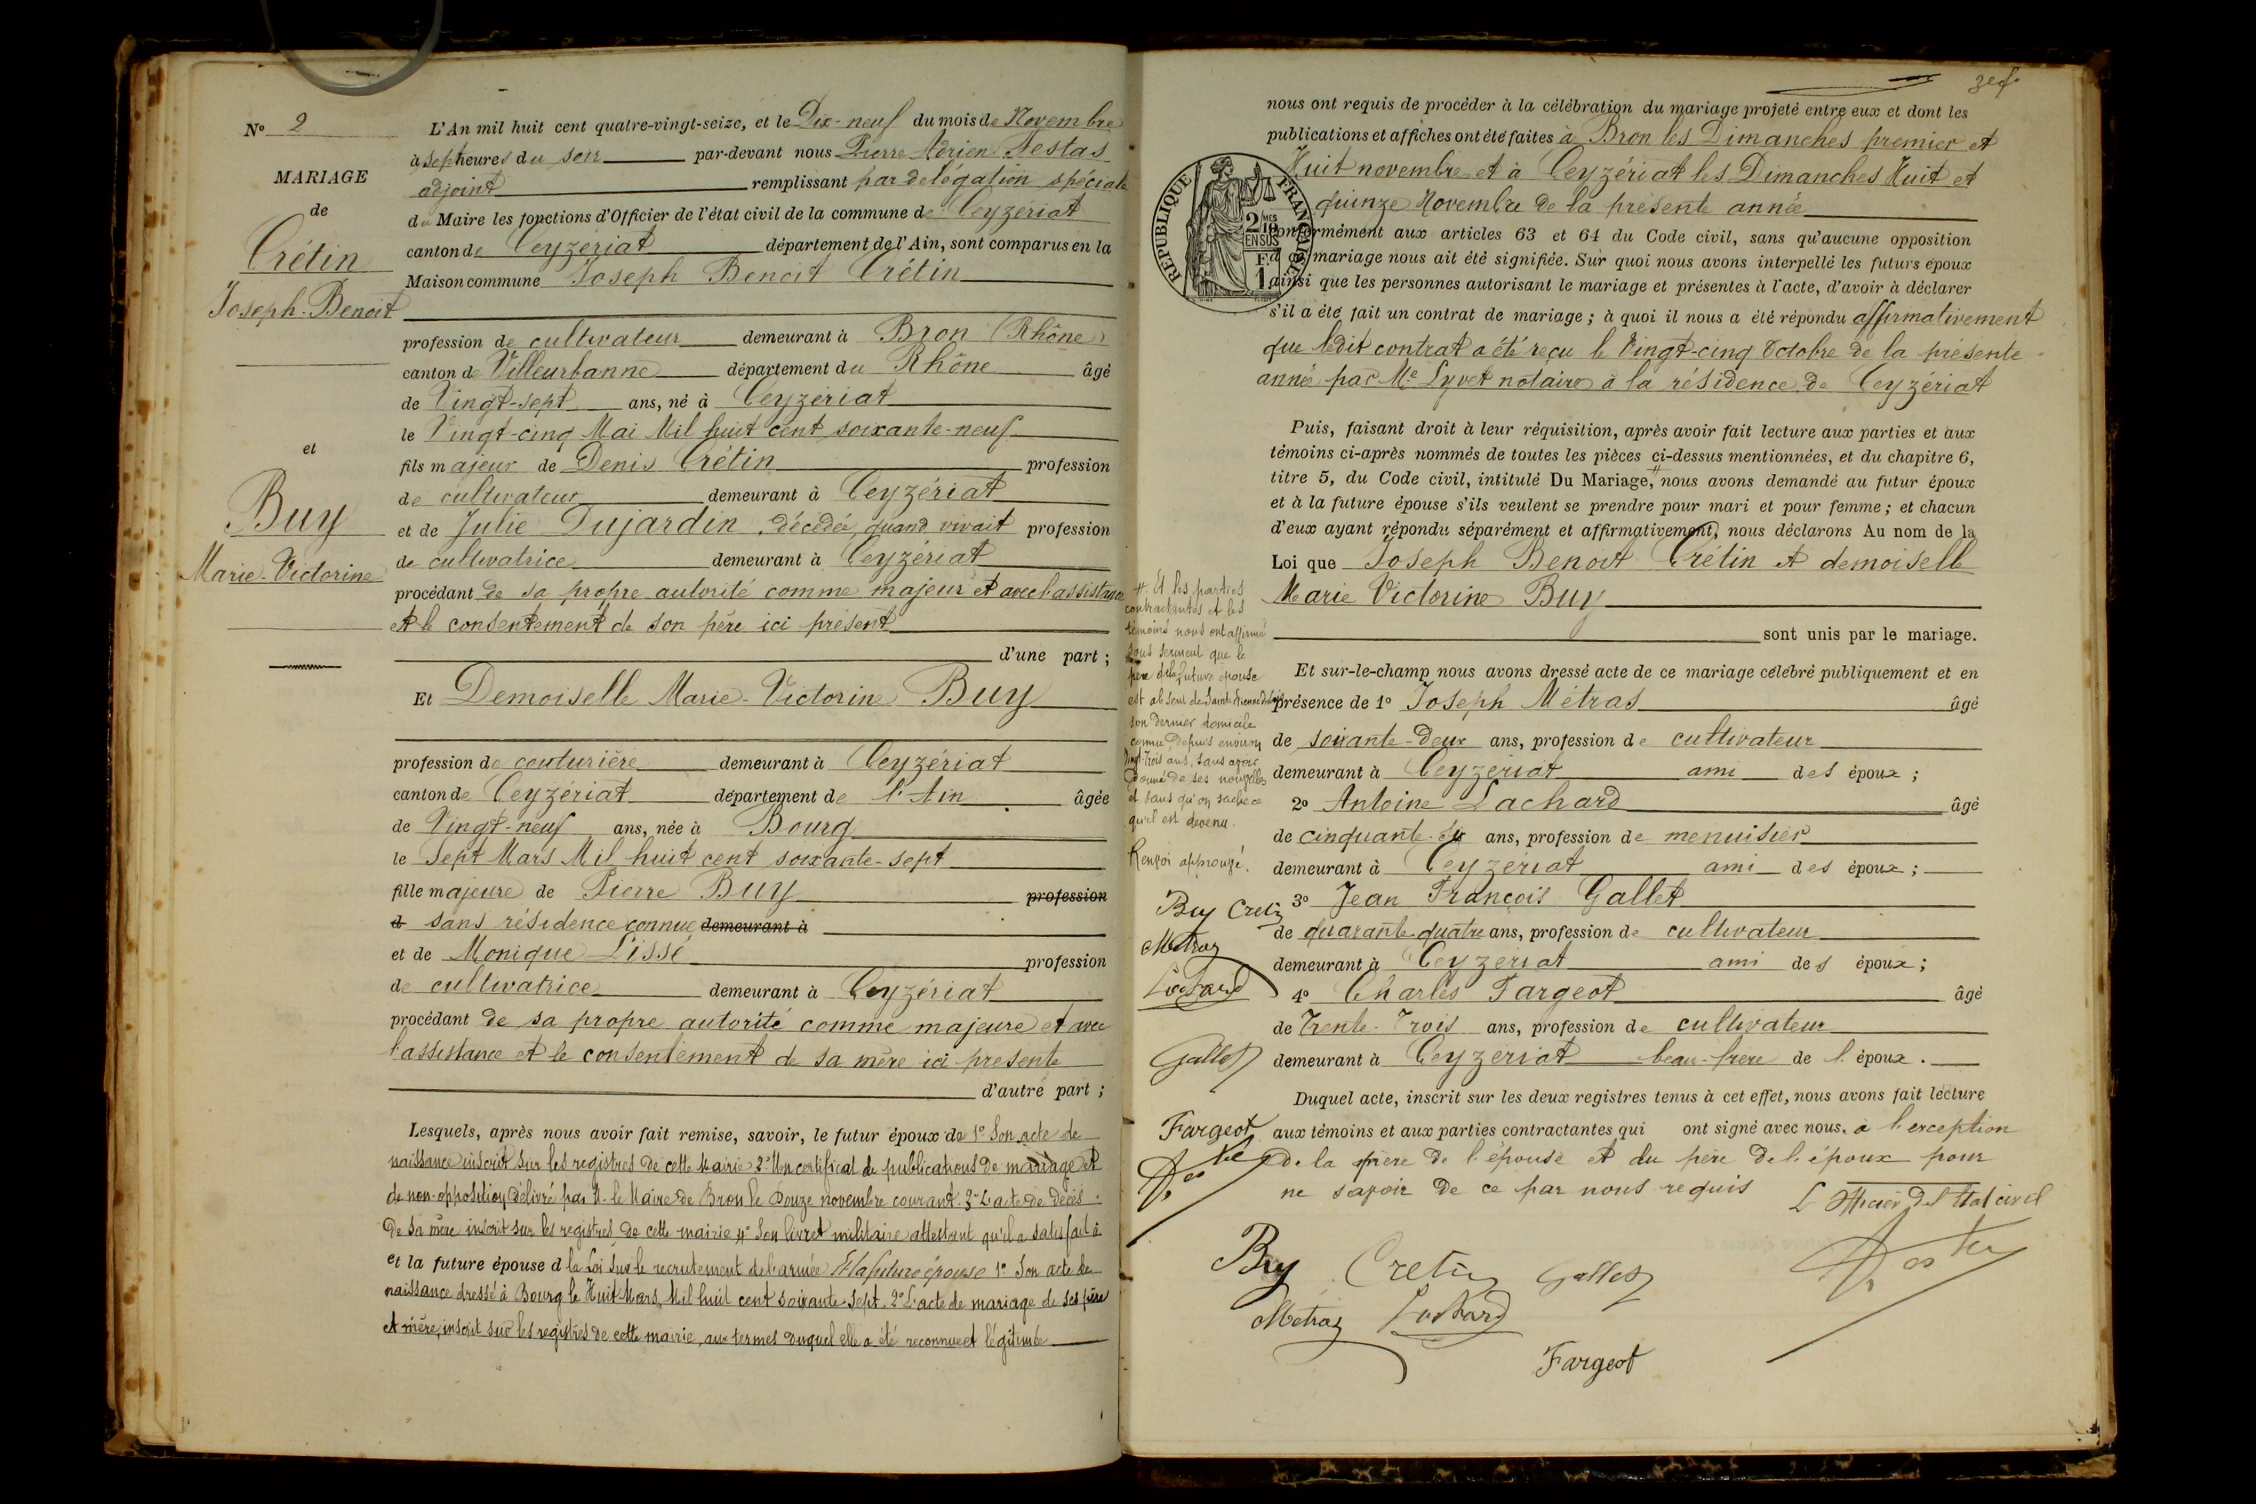 N° 2
MARIAGE
de
Crétin
Joseph-Benoit
et
Buy
Marie-Victorine
L'An mil huit cent quatre-vingt-seize, et le Dix-neuf du mois de Novembre
à sept heures du soir par-devant nous Pierre Adrien Nestas
adjoint remplissant par délégation spéciale
du Maire les fonctions d'Officier de l'état civil de la commune de Ceyzériat
canton de Ceyzériat département de l'Ain, sont comparus en la
Maison commune Joseph Benoit Crétin
profession de cultivateur demeurant à Bron (Rhône)
canton de Villeurbanne département du Rhône âgé
de Vingt-sept ans, né à Ceyzériat
le Vingt-cinq Mai Mil huit cent soixante-neuf
fils majeur de Denis Crétin profession
de cultivateur demeurant à Ceyzériat
et de Julie Dujardin, décédée, quand vivait profession
de cultivatrice demeurant à Ceyzériat
procédant de sa propre autorité comme majeur et avec l'assistance
et le consentement de son père ici présent
d'une part ;
Et Demoiselle Marie-Victorine Buy
profession de couturière demeurant à Ceyzériat
canton de Ceyzériat département de l'Ain âgée
de Vingt-neuf ans, née à Bourg
le Sept Mars Mil huit cent soixante-sept
fille majeure de Pierre Buy profession
d sans résidence connue demeurant à
et de Monique Lissé profession
de cultivatrice demeurant à Ceyzériat
procédant de sa propre autorité comme majeure et avec
l'assistance et le consentement de sa mère ici présente
d'autre part ;
Lesquels, après nous avoir fait remise, savoir, le futur époux de 1° Son acte de
naissance inscrit sur les registres de cette Mairie 2° Un certificat de publications de mariage et
de non-opposition délivré par M. le Maire de Bron le Douze novembre courant. 3° L'acte de décès
de sa mère inscrit sur les registres de cette mairie 4° Son livret militaire attestant qu'il a satisfait à
et la future épouse d la Loi sur le recrutement de l'armée Et la future épouse 1° Son acte de
naissance dressé à Bourg le Huit Mars Mil huit cent soixante-sept. 2° L'acte de mariage de ses père
et mère, inscrit sur les registres de cette mairie, aux termes duquel elle a été reconnue et légitimée
nous ont requis de procéder à la célébration du mariage projeté entre eux et dont les
publications et affiches ont été faites à Bron les Dimanches premier et
Huit novembre et à Ceyzériat les Dimanches Huit et
quinze Novembre de la présente année
conformément aux articles 63 et 64 du Code civil, sans qu'aucune opposition
à ce mariage nous ait été signifiée. Sur quoi nous avons interpellé les futurs époux
ainsi que les personnes autorisant le mariage et présentes à l'acte, d'avoir à déclarer
s'il a été fait un contrat de mariage ; à quoi il nous a été répondu affirmativement
que ledit contrat a été reçu le Vingt-cinq Octobre de la présente
année par Me Lyvet notaire à la résidence de Ceyzériat
REPUBLIQUE FRANÇAISE
2/10 MES
EN SUS
1 F.
Puis, faisant droit à leur réquisition, après avoir fait lecture aux parties et aux
témoins ci-après nommés de toutes les pièces ci-dessus mentionnées, et du chapitre 6,
titre 5, du Code civil, intitulé Du Mariage, # nous avons demandé au futur époux
et à la future épouse s'ils veulent se prendre pour mari et pour femme ; et chacun
d'eux ayant répondu séparément et affirmativement, nous déclarons Au nom de la
Loi que Joseph Benoit Crétin et demoiselle
Marie Victorine Buy
sont unis par le mariage.
# Et les parties
contractantes et les
témoins nous ont affirmé
sous serment que le
père de la future épouse
est absent de Sainte Etienne du bois
son dernier domicile
connu, depuis environ
Vingt-Trois ans, sans avoir
donné de ses nouvelles
et sans qu'on sache ce
qu'il est devenu.
Renvoi approuvé.
Buy Cretin
Métraz
Lachard
Gallet
Fargeot
Et sur-le-champ nous avons dressé acte de ce mariage célébré publiquement et en
présence de 1° Joseph Métras âgé
de soixante-deux ans, profession de cultivateur
demeurant à Ceyzériat ami des époux ;
2° Antoine Lachard âgé
de cinquante-six ans, profession de menuisier
demeurant à Ceyzériat ami des époux ;
3° Jean François Gallet
de quarante-quatre ans, profession de cultivateur
demeurant à Ceyzériat ami des époux ;
4° Charles Fargeot âgé
de Trente-Trois ans, profession de cultivateur
demeurant à Ceyzériat beau-frère de l' époux.
Duquel acte, inscrit sur les deux registres tenus à cet effet, nous avons fait lecture
aux témoins et aux parties contractantes qui ont signé avec nous. à l'exception
de la mère de l'épouse et du père de l'époux pour
ne savoir de ce par nous requis
L'Officier de l'Etat civil
Buy Cretin Gallet
Métraz Lachard
Fargeot